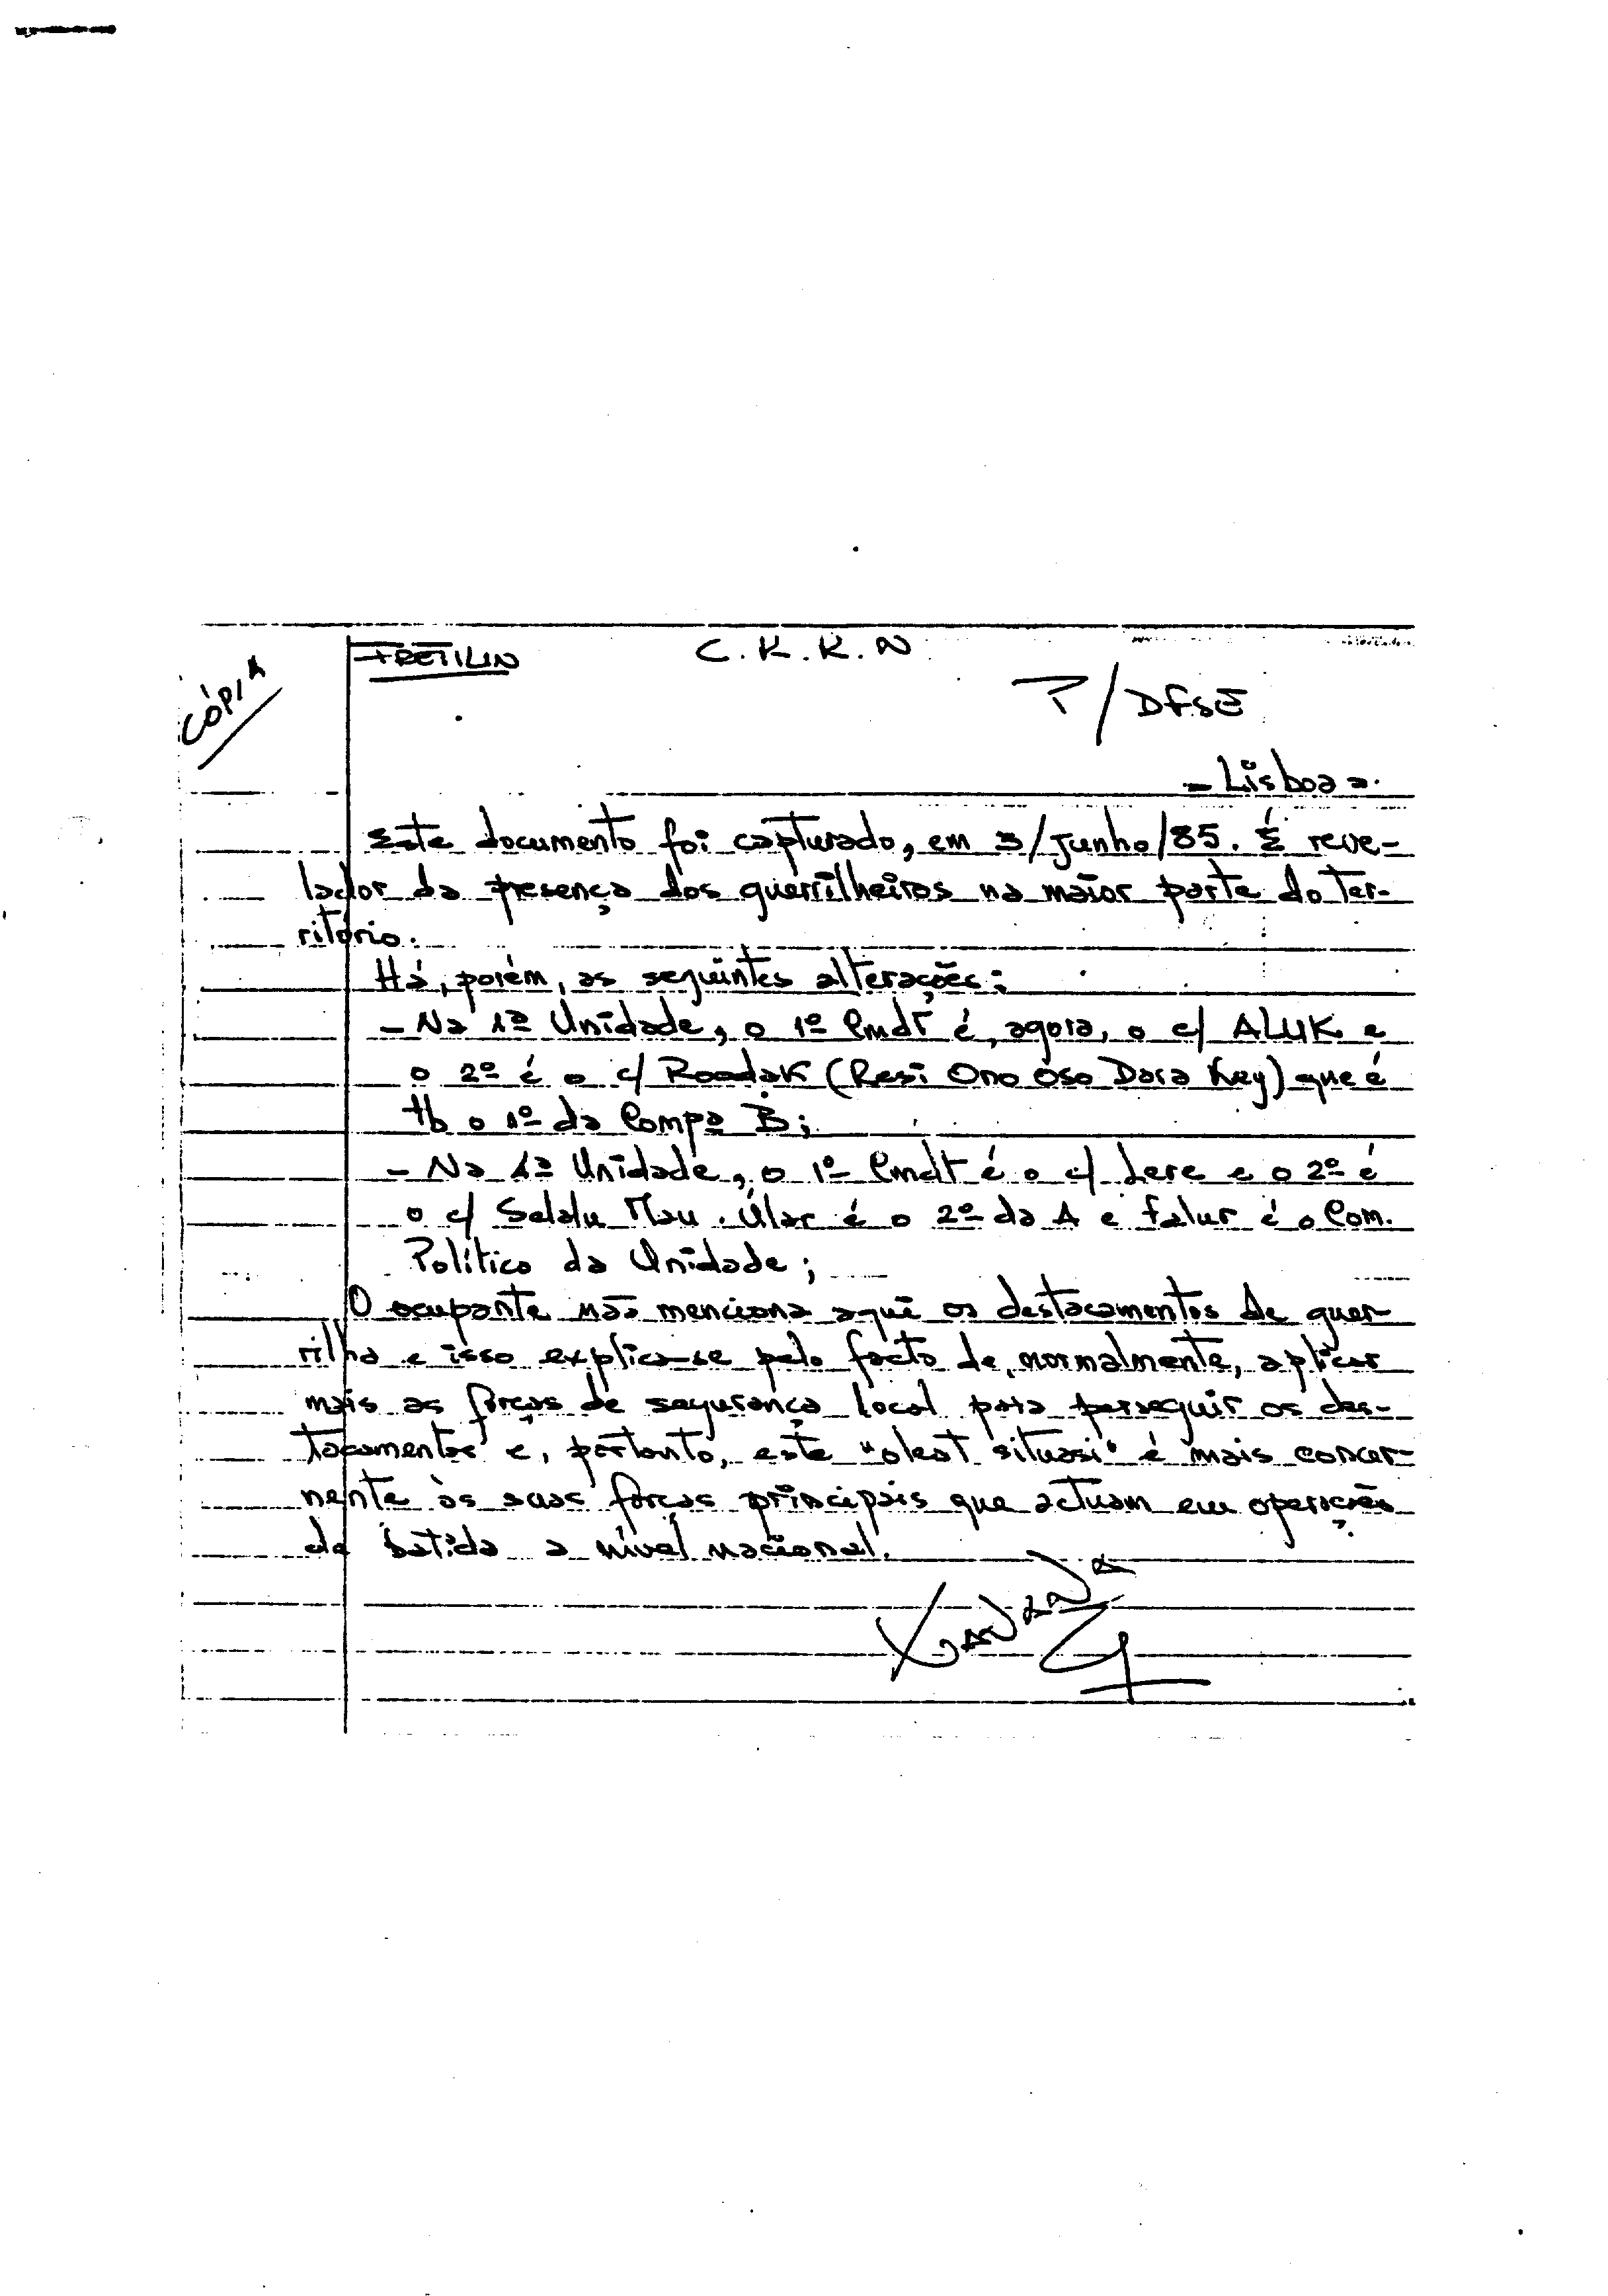 FRETILIN
C.K.K.N
CÓPIA
P/DFSE
- Lisboa -
Este documento foi capturado, em 3/Junho/85. É reve-
lador da presença dos guerrilheiros na maior parte do ter-
ritório.
Há, porém, as seguintes alterações:
- Na 1ª Unidade, o 1º Cmdt é, agora, o c/ ALUK e
o 2º é o c/ Roodak (Resi Ono Oso Dara Key) que é
tb o 1º da Compª B;
- Na 4ª Unidade, o 1º Cmdt é o c/ Lere e o 2º é
o c/ Selalu Mau. Úlar é o 2º da A e Falur é o Com.
Político da Unidade;
O ocupante não menciona aqui os destacamentos de guer-
rilha e isso explica-se pelo facto de, normalmente, aplicar
mais as forças de segurança local para perseguir os des-
tacamentos e, portanto, este "oleat situasi" é mais concer-
nente às suas forças principais que actuam em operações
de batida a nível nacional.
XANANA